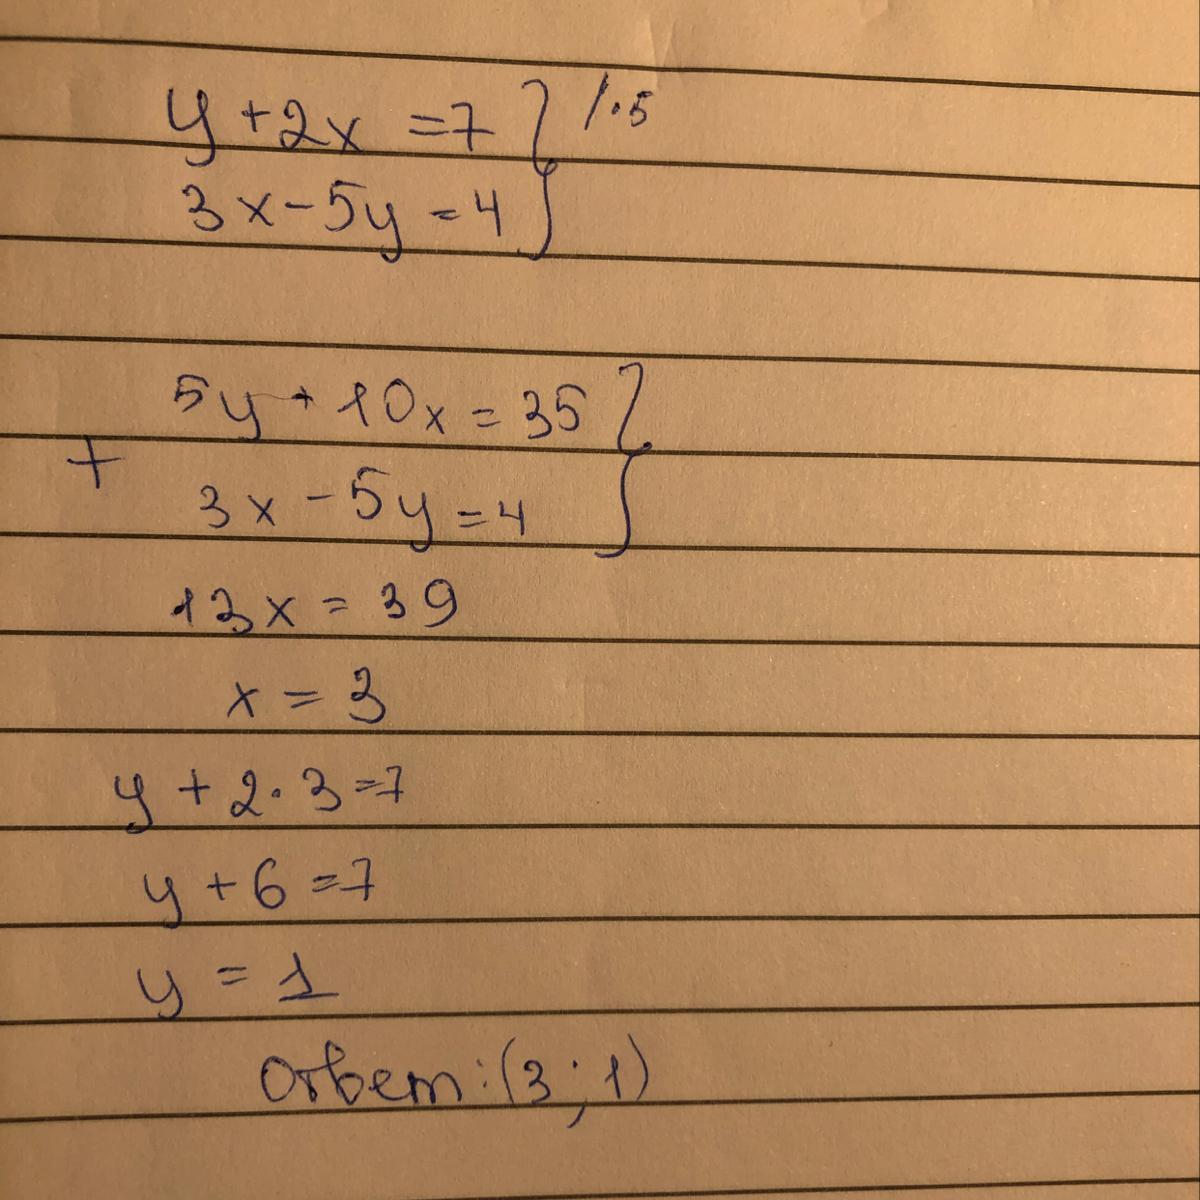 y+2x=7 } /·5
3x-5y=4
5y+10x=35 }
+
3x-5y=4
13x=39
x=3
y+2·3=7
y+6=7
y=1
Ответ:(3;1)